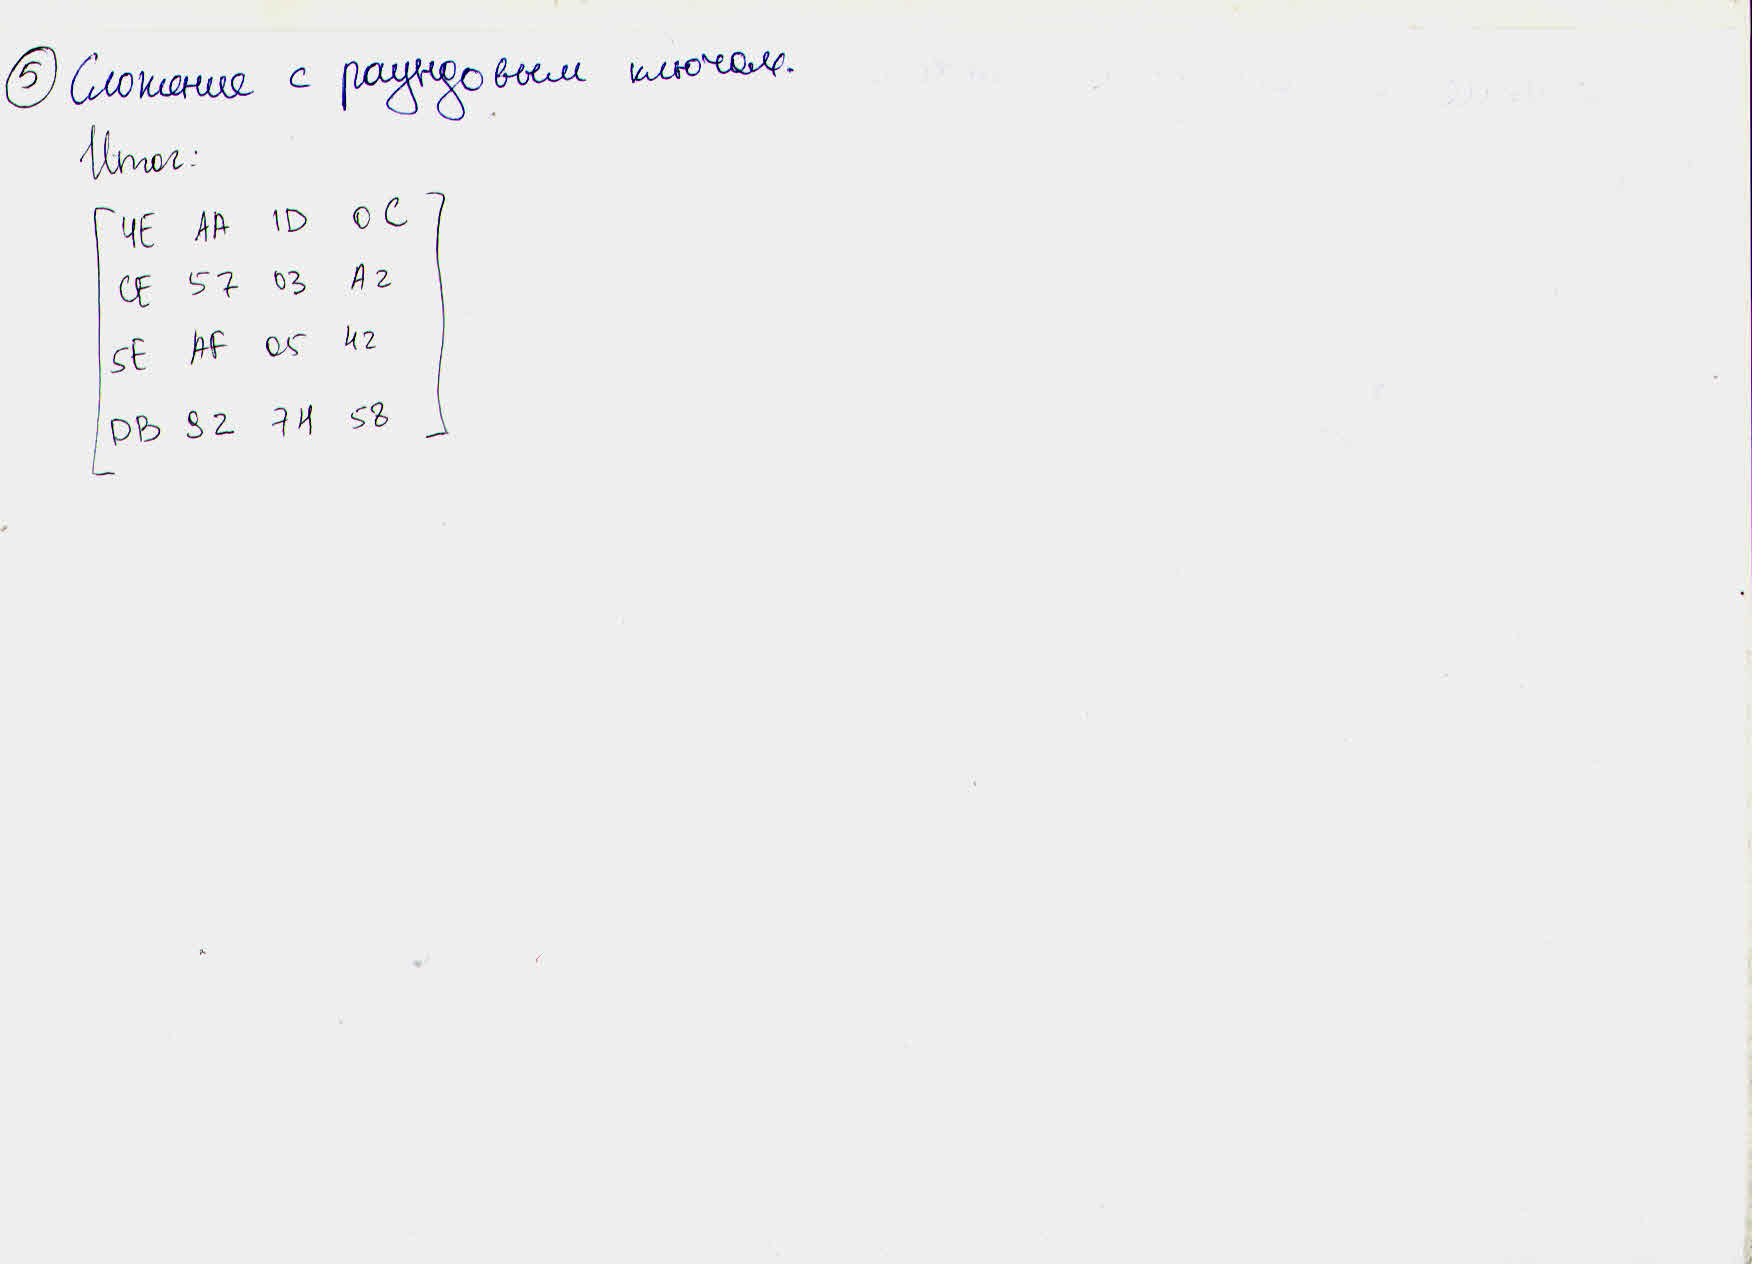 ⑤ Сложение с раундовым ключом.
Итог:
4E AA 1D 0C
CE 57 03 A2
5E AF 05 42
DB 92 74 58